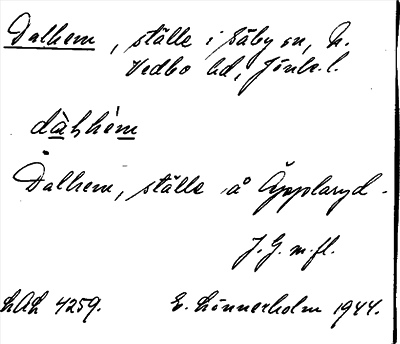 Dalhem, ställe i Säby sn, N.
Vedbo hd, Jönk. l.
dàlhèm
Dalhem, ställe å Äpplaryd.
J. G. m. fl.
LAL 4259. E. Linnerholm 1944.